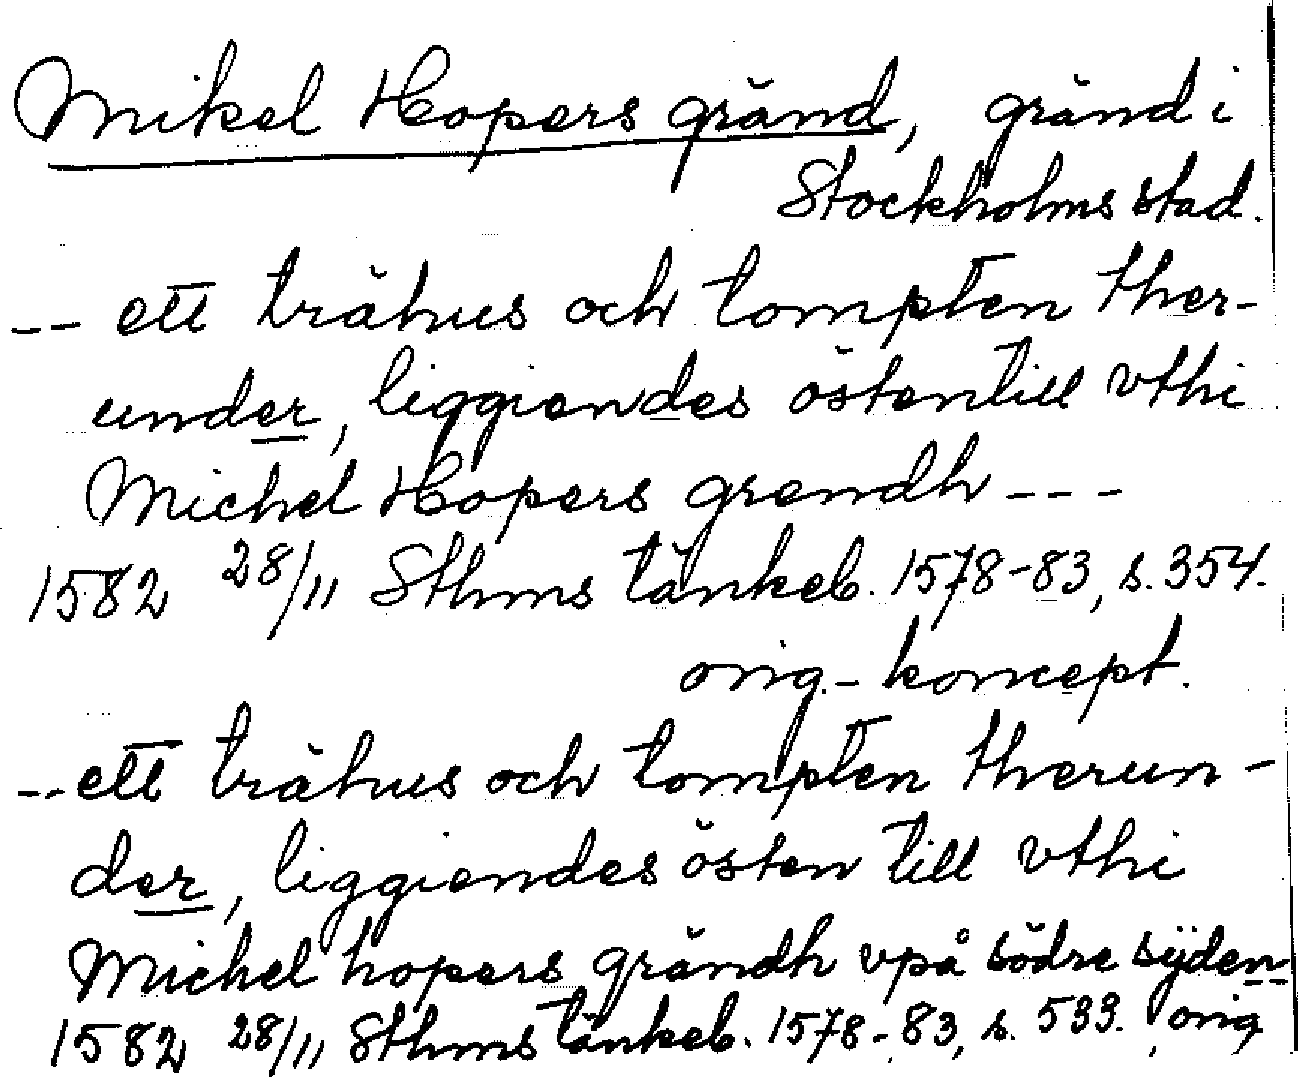 Mikel Hopers gränd, gränd i
Stockholms stad.
-- ett trähus och tompten ther-
under, liggiendes östentill vthi
Michel Hopers grendh ---
1582 28/11 Sthms tänkeb. 1578-83, s. 354.
orig.-koncept.
-- ett trähus och tompten therun-
der, liggiendes östen till vthi
Michel hopers grändh vpå södre sÿden --
1582 28/11 Sthms tänkeb. 1578-83, s. 533. orig